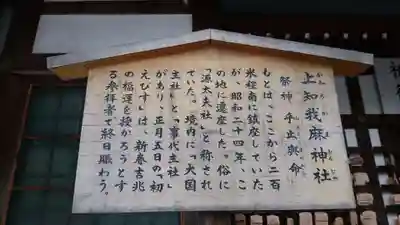 上知我麻神社
かみちかまじんじゃ
祭神 乎止與命
もとは、ここから二百
米程南に鎮座していた
が、昭和二十四年、こ
の地に遷座した。俗に
「源太夫社」と称され
ていた。境内に「大国
主社」と「事代主社」
があり、正月五日の「初
えびす」は、新春吉兆
の福運を授かろうとす
る参拝者で終日賑わう。